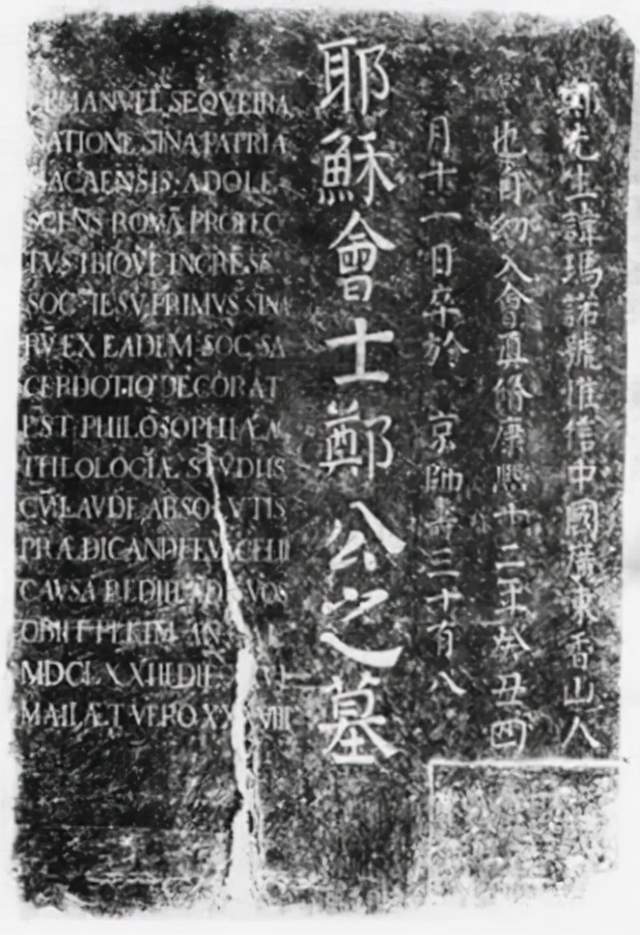 鄭先生諱瑪諾號惟信中國廣東香山人
也自幼入會真修康熙十二年癸丑四
月十一日卒於 京師壽三十有八
耶穌會士鄭公之墓
EMANVEL SEQVEIRA
NATIONE SINA PATRIA
MACAENSIS ADOLE
SCENS ROMĀ PROFEC
TVS IBIQVE INGRESS
SOC. IESV PRIMVS SINA
RV̄ EX EADEM SOC. SA
CERDOTIO DECORAT
EST PHILOSOPHIÆ A
THEOLOGIÆ STVDIIS
CV̄ LAVDE ABSOLVTIS
PRÆDICANDI EVAGELII
CAVSA REDIIT AD SVOS
OBIIT PEKIM AN
MDCLXXIII DIE
MAII ÆT VERO XXXVIII